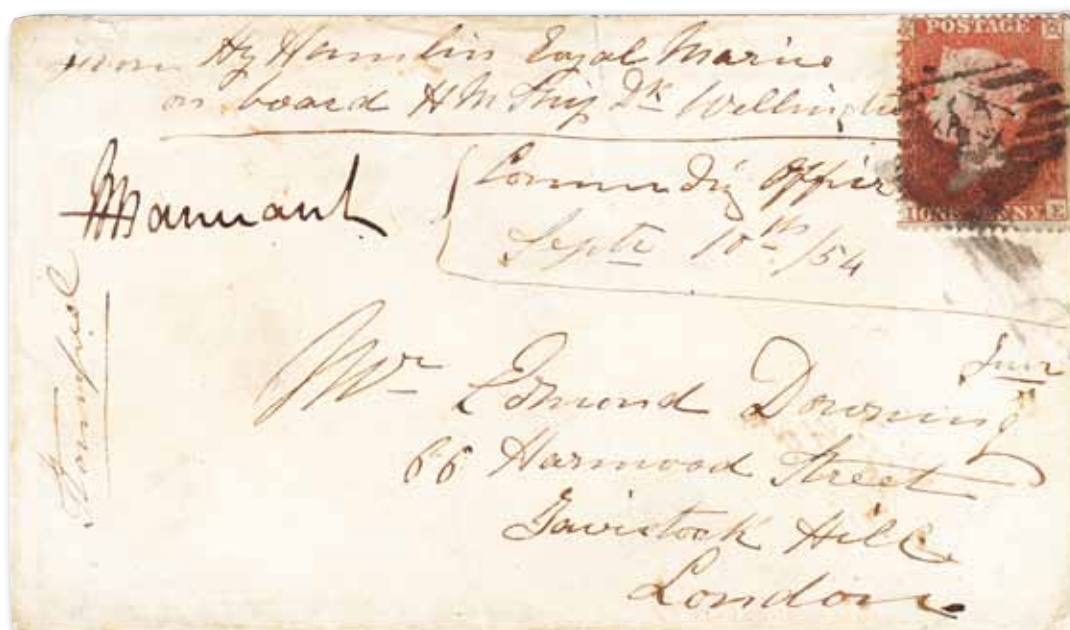 from Hy Hamlin Royal Marine
on board H M Ship Dk Wellington
POSTAGE
Commndig Officer
Septr 10th /54
ONE PENNY E
Stampied
Mr Edmond Downing Junr
66 Harmood Street
Tavistock Hill
London